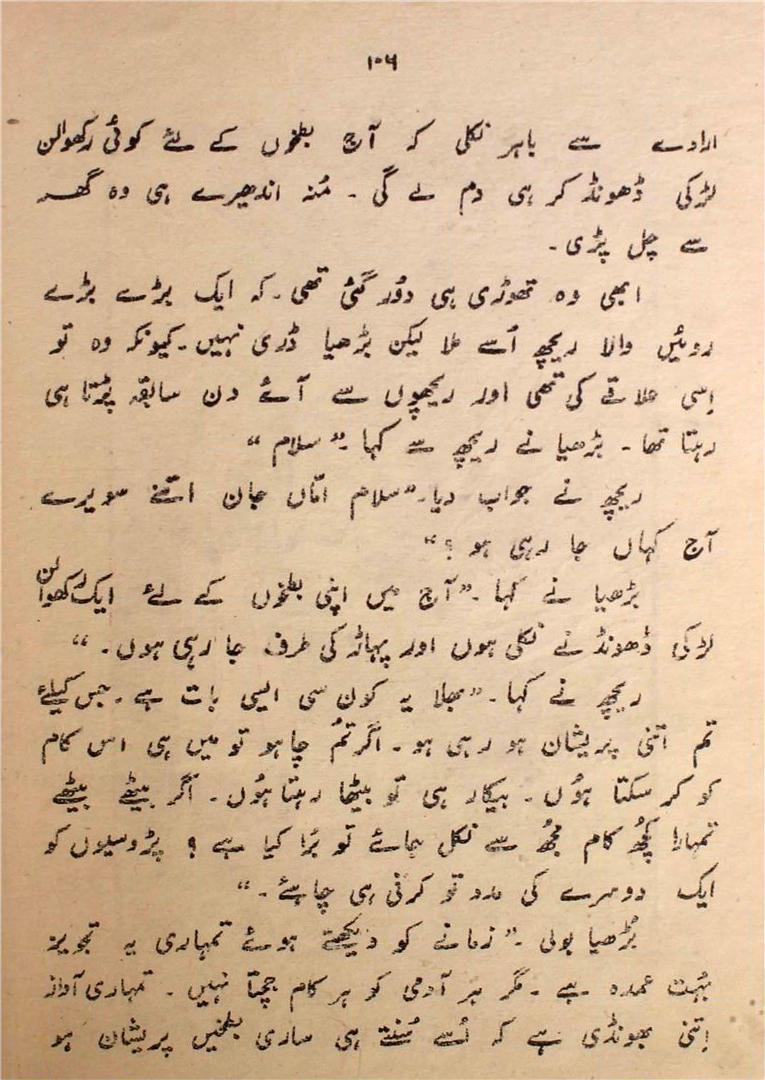 ۱۰۶
ارادے سے باہر نکلی کہ آج بطخوں کے لئے کوئی رکھوالن
لڑکی ڈھونڈ کر ہی دم لے گی ۔ مُنہ اندھیرے ہی وہ گھر
سے چل پڑی ۔
ابھی وہ تھوڑی ہی دُور گئی تھی ۔ کہ ایک بڑے بڑے
روئیں والا ریچھ اُسے ملا لیکن بڑھیا ڈری نہیں ۔ کیونکہ وہ تو
اِسی علاقے کی تھی اور ریچھوں سے آئے دن سابقہ پڑتا ہی
رہتا تھا ۔ بڑھیا نے ریچھ سے کہا ۔ ”سلام“
ریچھ نے جواب دیا ۔ ”سلام امّاں جان اتنے سویرے
آج کہاں جا رہی ہو ؟“
بڑھیا نے کہا ۔ ”آج میں اپنی بطخوں کے لئے ایک رکھوالن
لڑکی ڈھونڈنے نکلی ہوں اور پہاڑ کی طرف جا رہی ہوں ۔“
ریچھ نے کہا ۔ ”بھلا یہ کون سی ایسی بات ہے ۔ جس کیلئے
تم اتنی پریشان ہو رہی ہو ۔ اگر تُم چاہو تو میں ہی اس کام
کو کر سکتا ہوُں ۔ بیکار ہی تو بیٹھا رہتا ہوُں ۔ اگر بیٹھے بیٹھے
تمہارا کچُھ کام مجُھ سے نکل جائے تو برُا کیا ہے ؟ پڑوسیوں کو
ایک دوسرے کی مدد تو کرنی ہی چاہئے ۔“
بُڑھیا بولی ۔ ”زمانے کو دیکھتے ہوئے تمہاری یہ تجویز
بہُت عمدہ ہے ۔ مگر ہر آدمی کو ہر کام جچتا نہیں ۔ تمہاری آواز
اِتنی بھونڈی ہے کہ اُسے سُنتے ہی ساری بطخیں پریشان ہو